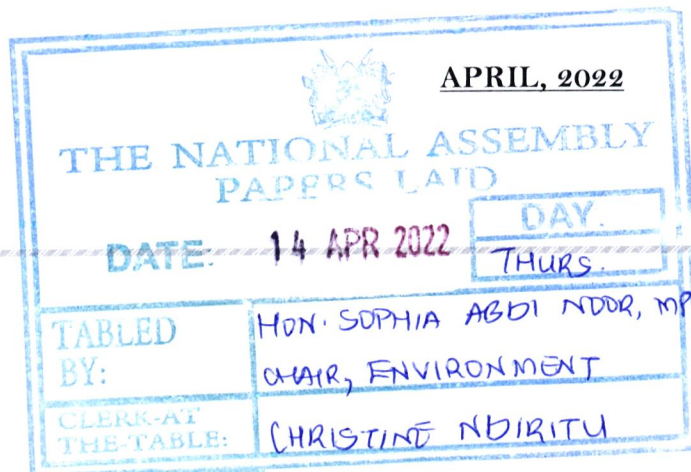 APRIL, 2022
THE NATIONAL ASSEMBLY
PAPERS LAID
DATE: 14 APR 2022 DAY.
THURS.
TABLED BY: HON. SOPHIA ABDI NOOR, MP
CHAIR, ENVIRONMENT
CLERK-AT THE-TABLE: CHRISTINE NDIRITU